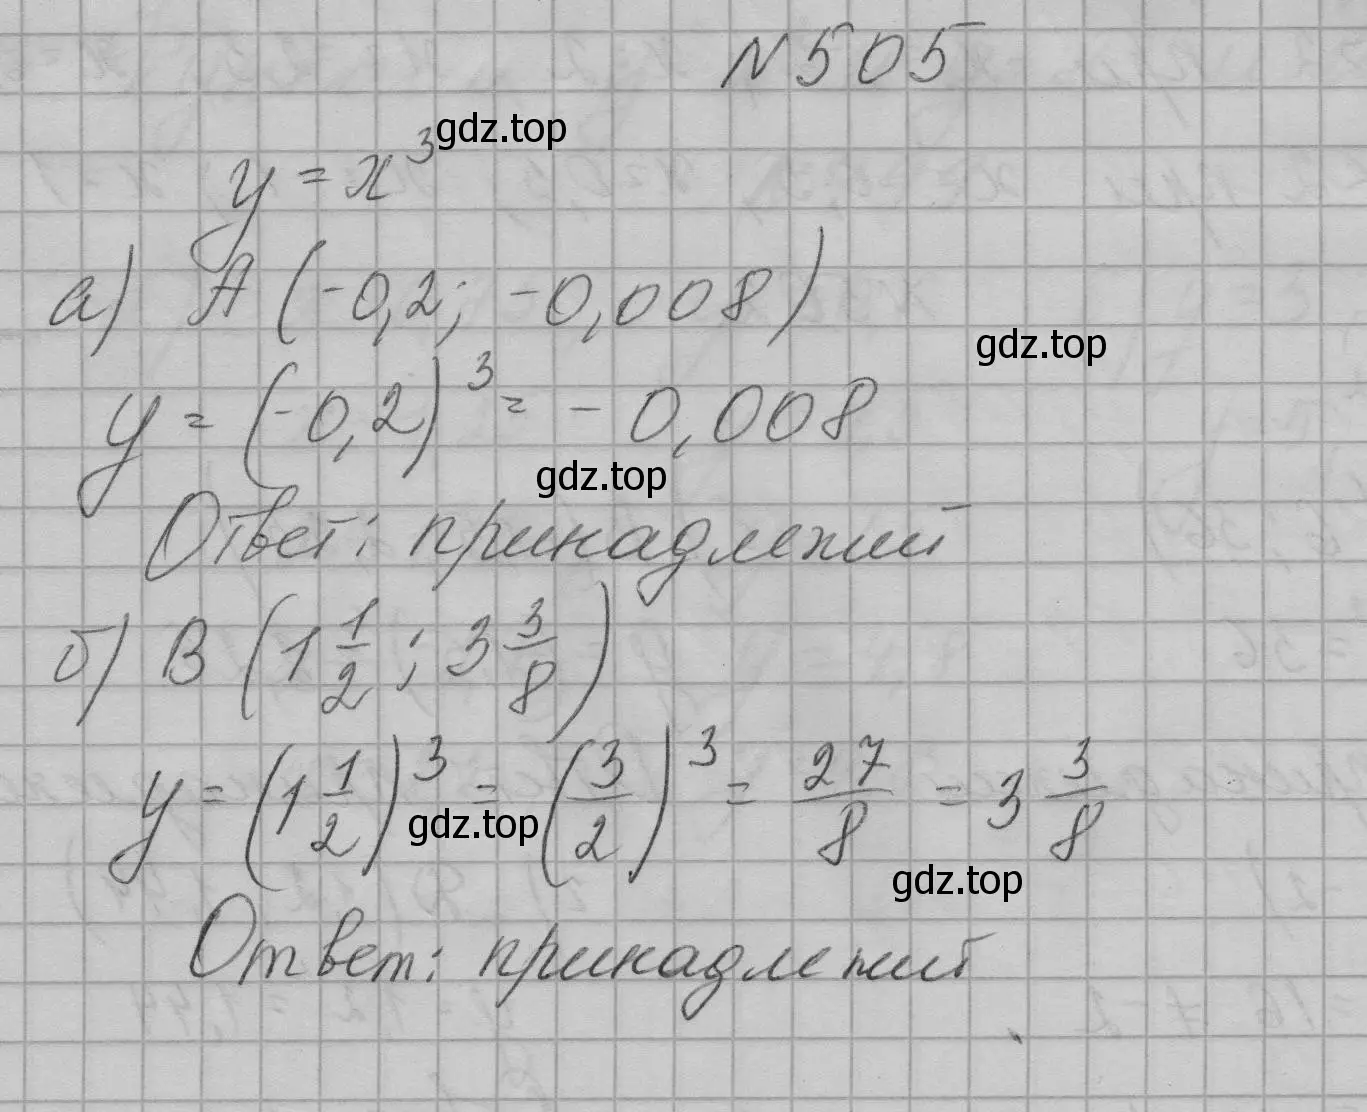 N 505
y = x³ gdz.top
а) A (-0,2; -0,008)
gdz.top
y = (-0,2)³ = -0,008
gdz.top
Ответ: принадлежит
б) B (1 1/2; 3 3/8)
y = (1 1/2)³ = (3/2)³ = 27/8 = 3 3/8
gdz.top
gdz.top
Ответ: принадлежит